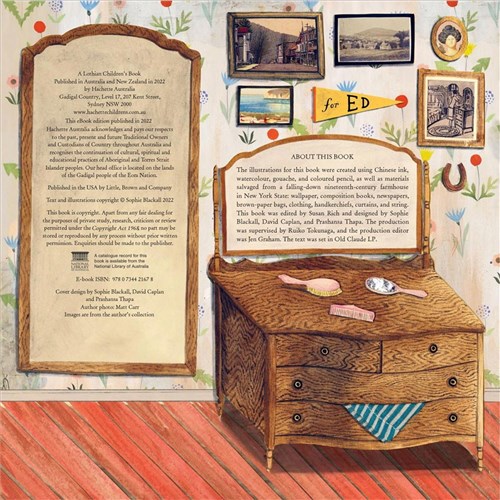 A Lothian Children's Book
Published in Australia and New Zealand in 2022
by Hachette Australia
Gadigal Country, Level 17, 207 Kent Street,
Sydney NSW 2000
www.hachettechildrens.com.au
This eBook edition published in 2022
Hachette Australia acknowledges and pays our respects
to the past, present and future Traditional Owners
and Custodians of Country throughout Australia and
recognises the continuation of cultural, spiritual and
educational practices of Aboriginal and Torres Strait
Islander peoples. Our head office is located on the lands
of the Gadigal people of the Eora Nation.
Published in the USA by Little, Brown and Company
Text and illustrations copyright © Sophie Blackall 2022
This book is copyright. Apart from any fair dealing for
the purposes of private study, research, criticism or review
permitted under the Copyright Act 1968, no part may be
stored or reproduced by any process without prior written
permission. Enquiries should be made to the publisher.
A catalogue record for this
book is available from the
National Library of Australia
E-book ISBN: 978 0 7344 2167 8
Cover design by Sophie Blackall, David Caplan
and Prashansa Thapa
Author photo: Matt Carr
Images are from the author's collection
for ED
ABOUT THIS BOOK
The illustrations for this book were created using Chinese ink,
watercolour, gouache, and coloured pencil, as well as materials
salvaged from a falling-down nineteenth-century farmhouse
in New York State: wallpaper, composition books, newspapers,
brown-paper bags, clothing, handkerchiefs, curtains, and string.
This book was edited by Susan Rich and designed by Sophie
Blackall, David Caplan, and Prashansa Thapa. The production
was supervised by Ruiko Tokunaga, and the production editor
was Jen Graham. The text was set in Old Claude LP.